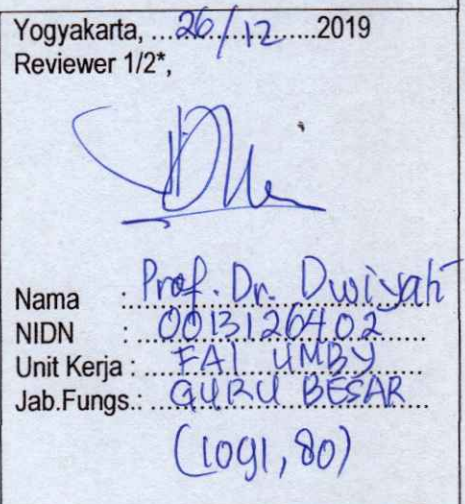 Yogyakarta, ...26/12......2019
Reviewer 1/2*,
Nama : Prof. Dr. Dwiyah
NIDN : 0013126402
Unit Kerja : FAI UMBY
Jab.Fungs.: GURU BESAR
(1091,80)